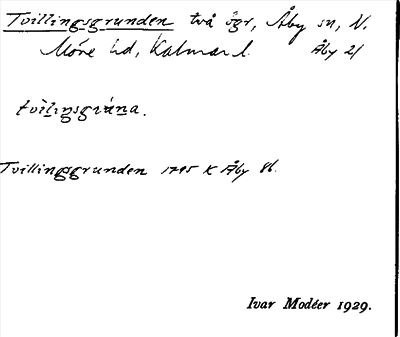 Tvillingsgrunden två ögr, Åby sn, N.
Möre hd, Kalmar l. Åby 21
tvìlıŋsgrúna.
Tvillinggrunden 1795 K Åby 86.
Ivar Modéer 1929.